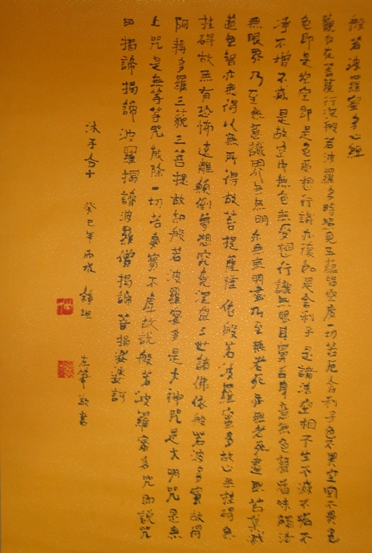 般若波羅蜜多心經
觀自在菩薩行深般若波羅多時照見五蘊皆空度一切苦厄舍利子色不異空空不異色
色即是空空即是色受想行識亦復如是舍利子是諸法空相不生不滅不垢不
淨不增不減是故空中無色無受想行識無眼耳鼻舌身意無色聲香味觸法
無眼界乃至無意識界無無明亦無無明盡乃至無老死亦無老死盡無苦集滅
道無智亦無得以無所得故菩提薩埵依般若波羅蜜多故心無挂礙無
挂礙故無有恐怖遠離顛倒夢想究竟涅槃三世諸佛依般若波羅蜜多故得
阿耨多羅三藐三菩提故知般若波羅蜜多是大神咒是大明咒是無
上咒是無等等咒能除一切苦真實不虛故說般若波羅蜜多咒即說咒
曰揭諦揭諦波羅揭諦波羅僧揭諦菩提娑婆訶
沐手合十 癸巳年雨
書